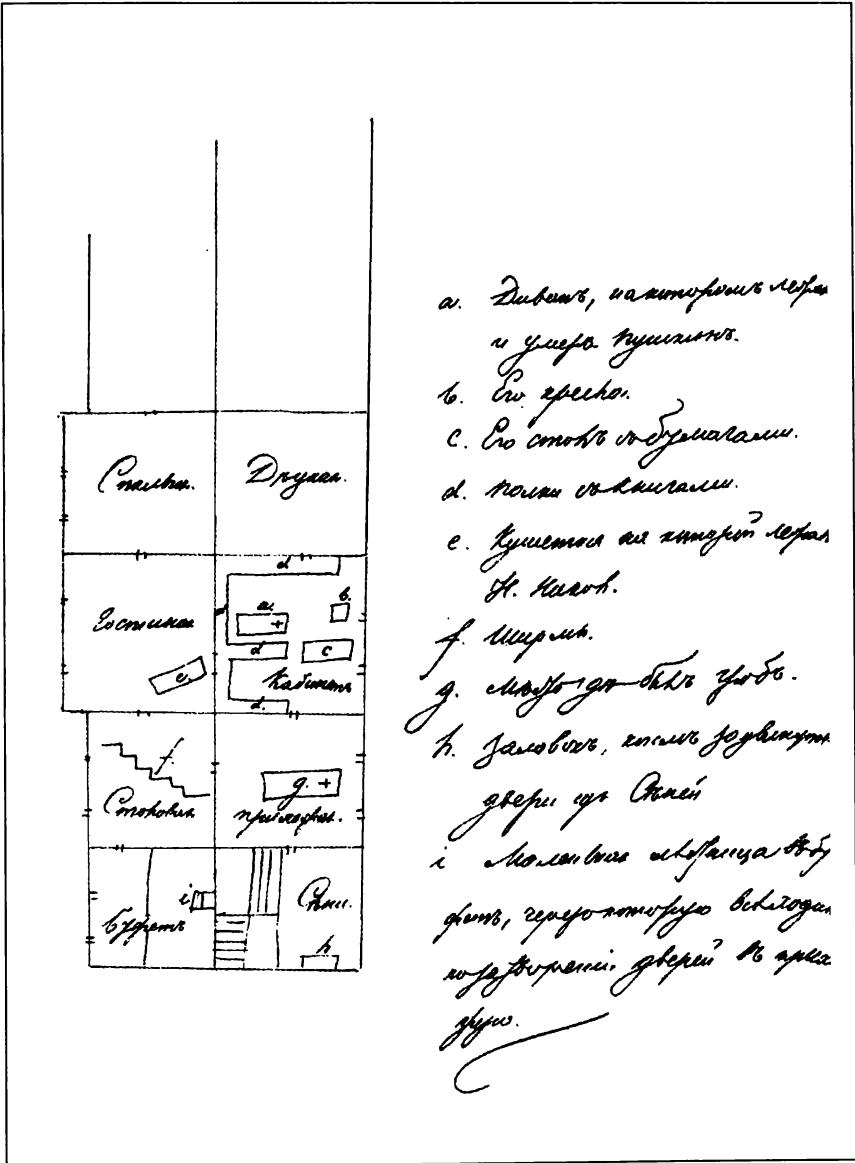 Спальня.
Дѣтская.
Гостиная
a.
b.
c
d
d
d.
e.
Кабинетъ
f
g.
Столовая
прихожая.
Буфетъ
i
Сѣни.
h
a. Диванъ, на которомъ лежа
и умеръ Пушкинъ.
b. Его кресло.
c. Его столъ съ бумагами.
d. полки съ книгами.
e. Кушетка на которой лежал
Н. Никол.
f. Ширмы.
g. Мѣсто гдѣ былъ гробъ.
h. Залавокъ, коимъ задвинуты
двери изъ Сѣней
i Маленькая лѣстница въ бу
фетъ, черезъ которую входил
по затворении дверей въ прих
жую.